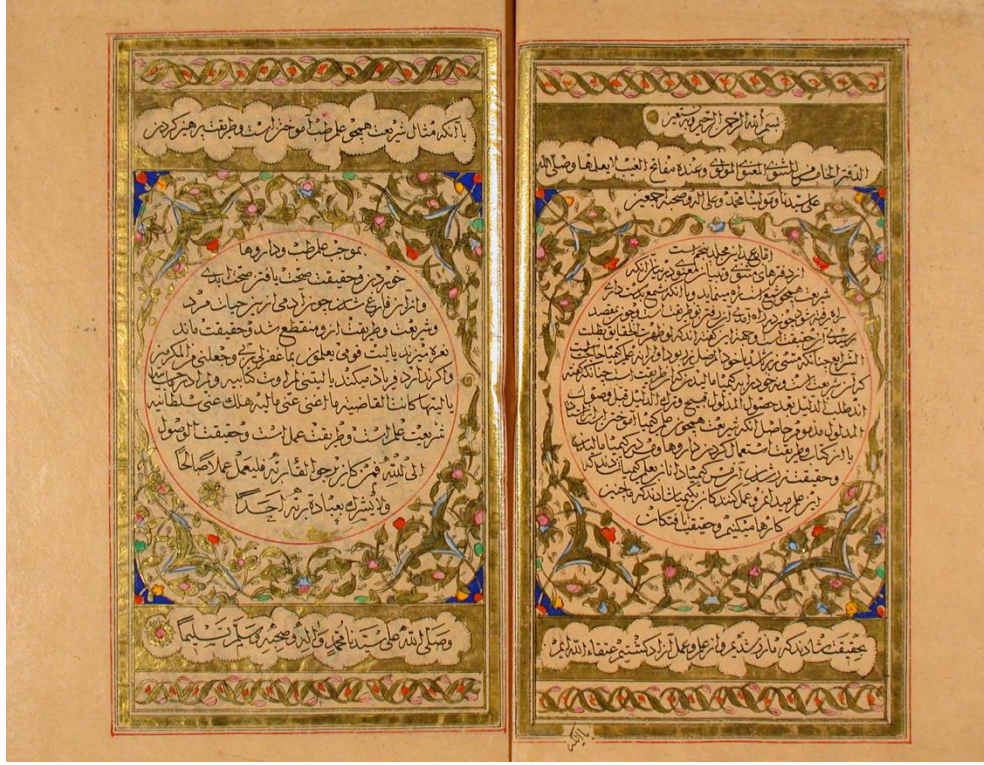 بسم الله الرحمن الرحیم وبه نستعین
الدفتر الخامس من المثنوی المعنوی المولوی وعنده مفاتح الغیب لا یعلمها وصلی الله
علی سیدنا ومولینا محمد وعلی اله وصحبه اجمعین
اما بعد این مجلد پنجم است
از دفترهای مثنوی وتبیان معنوی در بیان آنکه
شریعت همچون شمع است ره مینماید وبی آنکه شمع بدست آری
راه رفته نشود چون در راه آمدی آن رفتن تو طریقتست وچون بمقصد
رسیدی آن حقیقت است وجهت این گفته اند که لو ظهرت الحقایق بطلت
الشرایع چنانکه مس زر شود یا خود از اصل زر بود او را نه علم کیمیا حاجتست
که آن شریعت است ونه خود را بر کیمیا مالیدن که آن طریقت است چنانکه گفته
اند طلب الدلیل بعد حصول المدلول قبیح وترک الدلیل قبل وصول
المدلول مذموم حاصل آنکه شریعت همچون علم کیمیا آموختن است از استاد
یا از کتاب وطریقت استعمال کردن داروها ومس در کیمیا مالیدن
وحقیقت زر شدن آن مس کیمیا دانان بعلم کیمیا شادند که
این علم میدانیم وعمل کنندگان بکیمیا شادند که ما چنین
کارها میکنیم وحقیقت یافتگان
بحقیقت شادند که ما زر شدیم واز علم وعمل آزاد گشتیم عتقاء الله ایم
یا آنکه
یا آنکه مثال شریعت همچو علم طب آموختن است وطریقت پرهیز کردن
بموجب علم طب وداروها
خوردن وحقیقت صحت یافتن صحت ابدی
واز آن فارغ شدن چون آدمی ازین حیات مرد
وشریعت وطریقت ازو منقطع شد وحقیقت ماند
نعره میزند یا لیت قومی یعلمون بما غفر لی ربی وجعلنی من المکرمین
واگر ندارد فریاد میکند یا لیتنی لم اوت کتابیه ولم ادر ما حسابیه
یا لیتها کانت القاضیه ما اغنی عنی مالیه هلک عنی سلطانیه
شریعت علم است وطریقت عمل است وحقیقت الوصول
الی الله فمن کان یرجوا لقاء ربه فلیعمل عملا صالحا
ولا یشرک بعبادة ربه احدا
وصلی الله علی سیدنا محمد واله وصحبه وسلم تسلیما